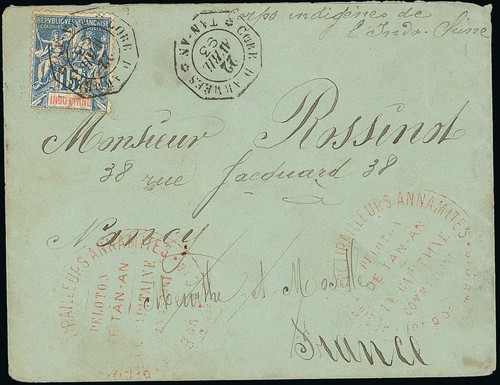 Corps indigènes de
l'Indo-Chine
REPUBLIQUE FRANÇAISE
COLONIES
15
INDO-CHINE
CORR. D'ARMÉES
CORR. D'ARMÉES
TAN-AN
22
AVRIL
93
Monsieur Rossinot
38 rue Jacquard 38
Nancy
Meurthe et Moselle
France
TIRAILLEURS ANNAMITES
PELOTON
DE TAN-AN
LE CAPITAINE
TIRAILLEURS ANNAMITES
PELOTON
DE TAN-AN
LE CAPITAINE